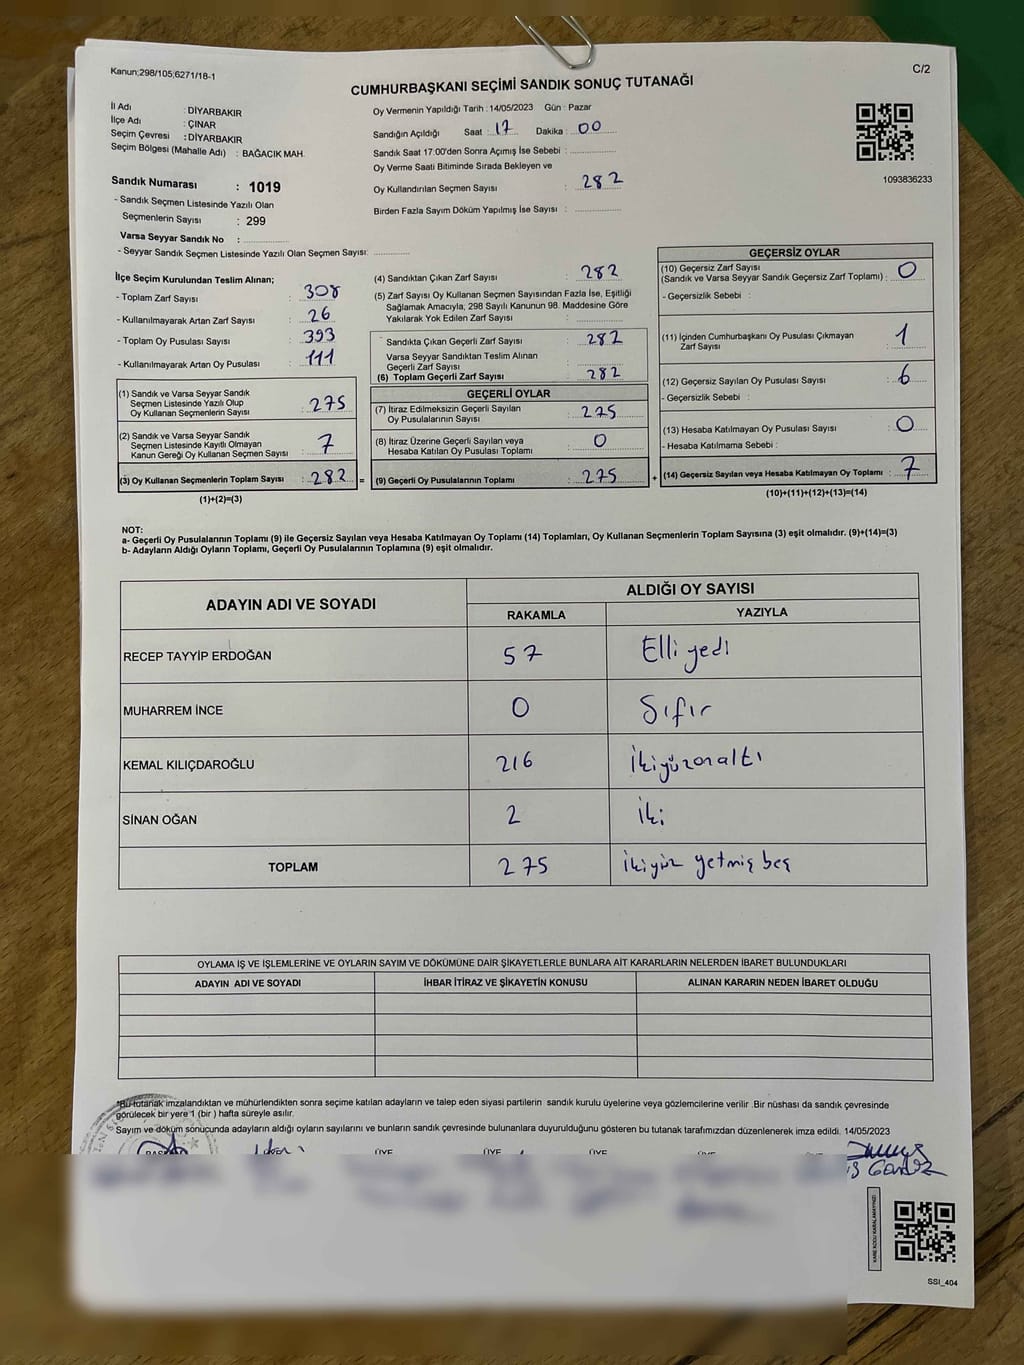 Kanun;298/105;6271/18-1
C/2
CUMHURBAŞKANI SEÇİMİ SANDIK SONUÇ TUTANAĞI
İl Adı : DİYARBAKIR
İlçe Adı : ÇINAR
Seçim Çevresi : DİYARBAKIR
Seçim Bölgesi (Mahalle Adı) : BAĞACIK MAH.
Oy Vermenin Yapıldığı Tarih : 14/05/2023 Gün : Pazar
Sandığın Açıldığı Saat : 17 Dakika : 00
Sandık Saat 17:00'den Sonra Açımış İse Sebebi :
Oy Verme Saati Bitiminde Sırada Bekleyen ve
Oy Kullandırılan Seçmen Sayısı : 282
Birden Fazla Sayım Döküm Yapılmış İse Sayısı :
1093836233
Sandık Numarası : 1019
- Sandık Seçmen Listesinde Yazılı Olan
Seçmenlerin Sayısı : 299
Varsa Seyyar Sandık No :
- Seyyar Sandık Seçmen Listesinde Yazılı Olan Seçmen Sayısı:
İlçe Seçim Kurulundan Teslim Alınan;
- Toplam Zarf Sayısı : 308
- Kullanılmayarak Artan Zarf Sayısı : 26
- Toplam Oy Pusulası Sayısı : 393
- Kullanılmayarak Artan Oy Pusulası : 111
(1) Sandık ve Varsa Seyyar Sandık
Seçmen Listesinde Yazılı Olup
Oy Kullanan Seçmenlerin Sayısı : 275
(2) Sandık ve Varsa Seyyar Sandık
Seçmen Listesinde Kayıtlı Olmayan
Kanun Gereği Oy Kullanan Seçmen Sayısı : 7
(3) Oy Kullanan Seçmenlerin Toplam Sayısı : 282 =
(1)+(2)=(3)
(4) Sandıktan Çıkan Zarf Sayısı : 282
(5) Zarf Sayısı Oy Kullanan Seçmen Sayısından Fazla İse, Eşitliği
Sağlamak Amacıyla, 298 Sayılı Kanunun 98. Maddesine Göre
Yakılarak Yok Edilen Zarf Sayısı :
Sandıkta Çıkan Geçerli Zarf Sayısı : 282
Varsa Seyyar Sandıktan Teslim Alınan
Geçerli Zarf Sayısı :
(6) Toplam Geçerli Zarf Sayısı : 282
GEÇERLİ OYLAR
(7) İtiraz Edilmeksizin Geçerli Sayılan
Oy Pusulalarının Sayısı : 275
(8) İtiraz Üzerine Geçerli Sayılan veya
Hesaba Katılan Oy Pusulası Toplamı : 0
(9) Geçerli Oy Pusulalarının Toplamı : 275 +
GEÇERSİZ OYLAR
(10) Geçersiz Zarf Sayısı
(Sandık ve Varsa Seyyar Sandık Geçersiz Zarf Toplamı) : 0
- Geçersizlik Sebebi :
(11) İçinden Cumhurbaşkanı Oy Pusulası Çıkmayan
Zarf Sayısı : 1
(12) Geçersiz Sayılan Oy Pusulası Sayısı : 6
- Geçersizlik Sebebi :
(13) Hesaba Katılmayan Oy Pusulası Sayısı : 0
- Hesaba Katılmama Sebebi :
(14) Geçersiz Sayılan veya Hesaba Katılmayan Oy Toplamı : 7
(10)+(11)+(12)+(13)=(14)
NOT:
a- Geçerli Oy Pusulalarının Toplamı (9) ile Geçersiz Sayılan veya Hesaba Katılmayan Oy Toplamı (14) Toplamları, Oy Kullanan Seçmenlerin Toplam Sayısına (3) eşit olmalıdır. (9)+(14)=(3)
b- Adayların Aldığı Oyların Toplamı, Geçerli Oy Pusulalarının Toplamına (9) eşit olmalıdır.
ADAYIN ADI VE SOYADI ALDIĞI OY SAYISI
RAKAMLA YAZIYLA
RECEP TAYYİP ERDOĞAN 57 Elli yedi
MUHARREM İNCE 0 Sıfır
KEMAL KILIÇDAROĞLU 216 İkiyüzonaltı
SİNAN OĞAN 2 İki
TOPLAM 275 İkiyüz yetmiş beş
OYLAMA İŞ VE İŞLEMLERİNE VE OYLARIN SAYIM VE DÖKÜMÜNE DAİR ŞİKAYETLERLE BUNLARA AİT KARARLARIN NELERDEN İBARET BULUNDUKLARI
ADAYIN ADI VE SOYADI İHBAR İTİRAZ VE ŞİKAYETİN KONUSU ALINAN KARARIN NEDEN İBARET OLDUĞU
*Bu tutanak imzalandıktan ve mühürlendikten sonra seçime katılan adayların ve talep eden siyasi partilerin sandık kurulu üyelerine veya gözlemcilerine verilir .Bir nüshası da sandık çevresinde
görülecek bir yere 1 (bir ) hafta süreyle asılır.
Sayım ve döküm sonucunda adayların aldığı oyların sayılarını ve bunların sandık çevresinde bulunanlara duyurulduğunu gösteren bu tutanak tarafımızdan düzenlenerek imza edildi. 14/05/2023
ÜYE ÜYE ÜYE
SSI_404